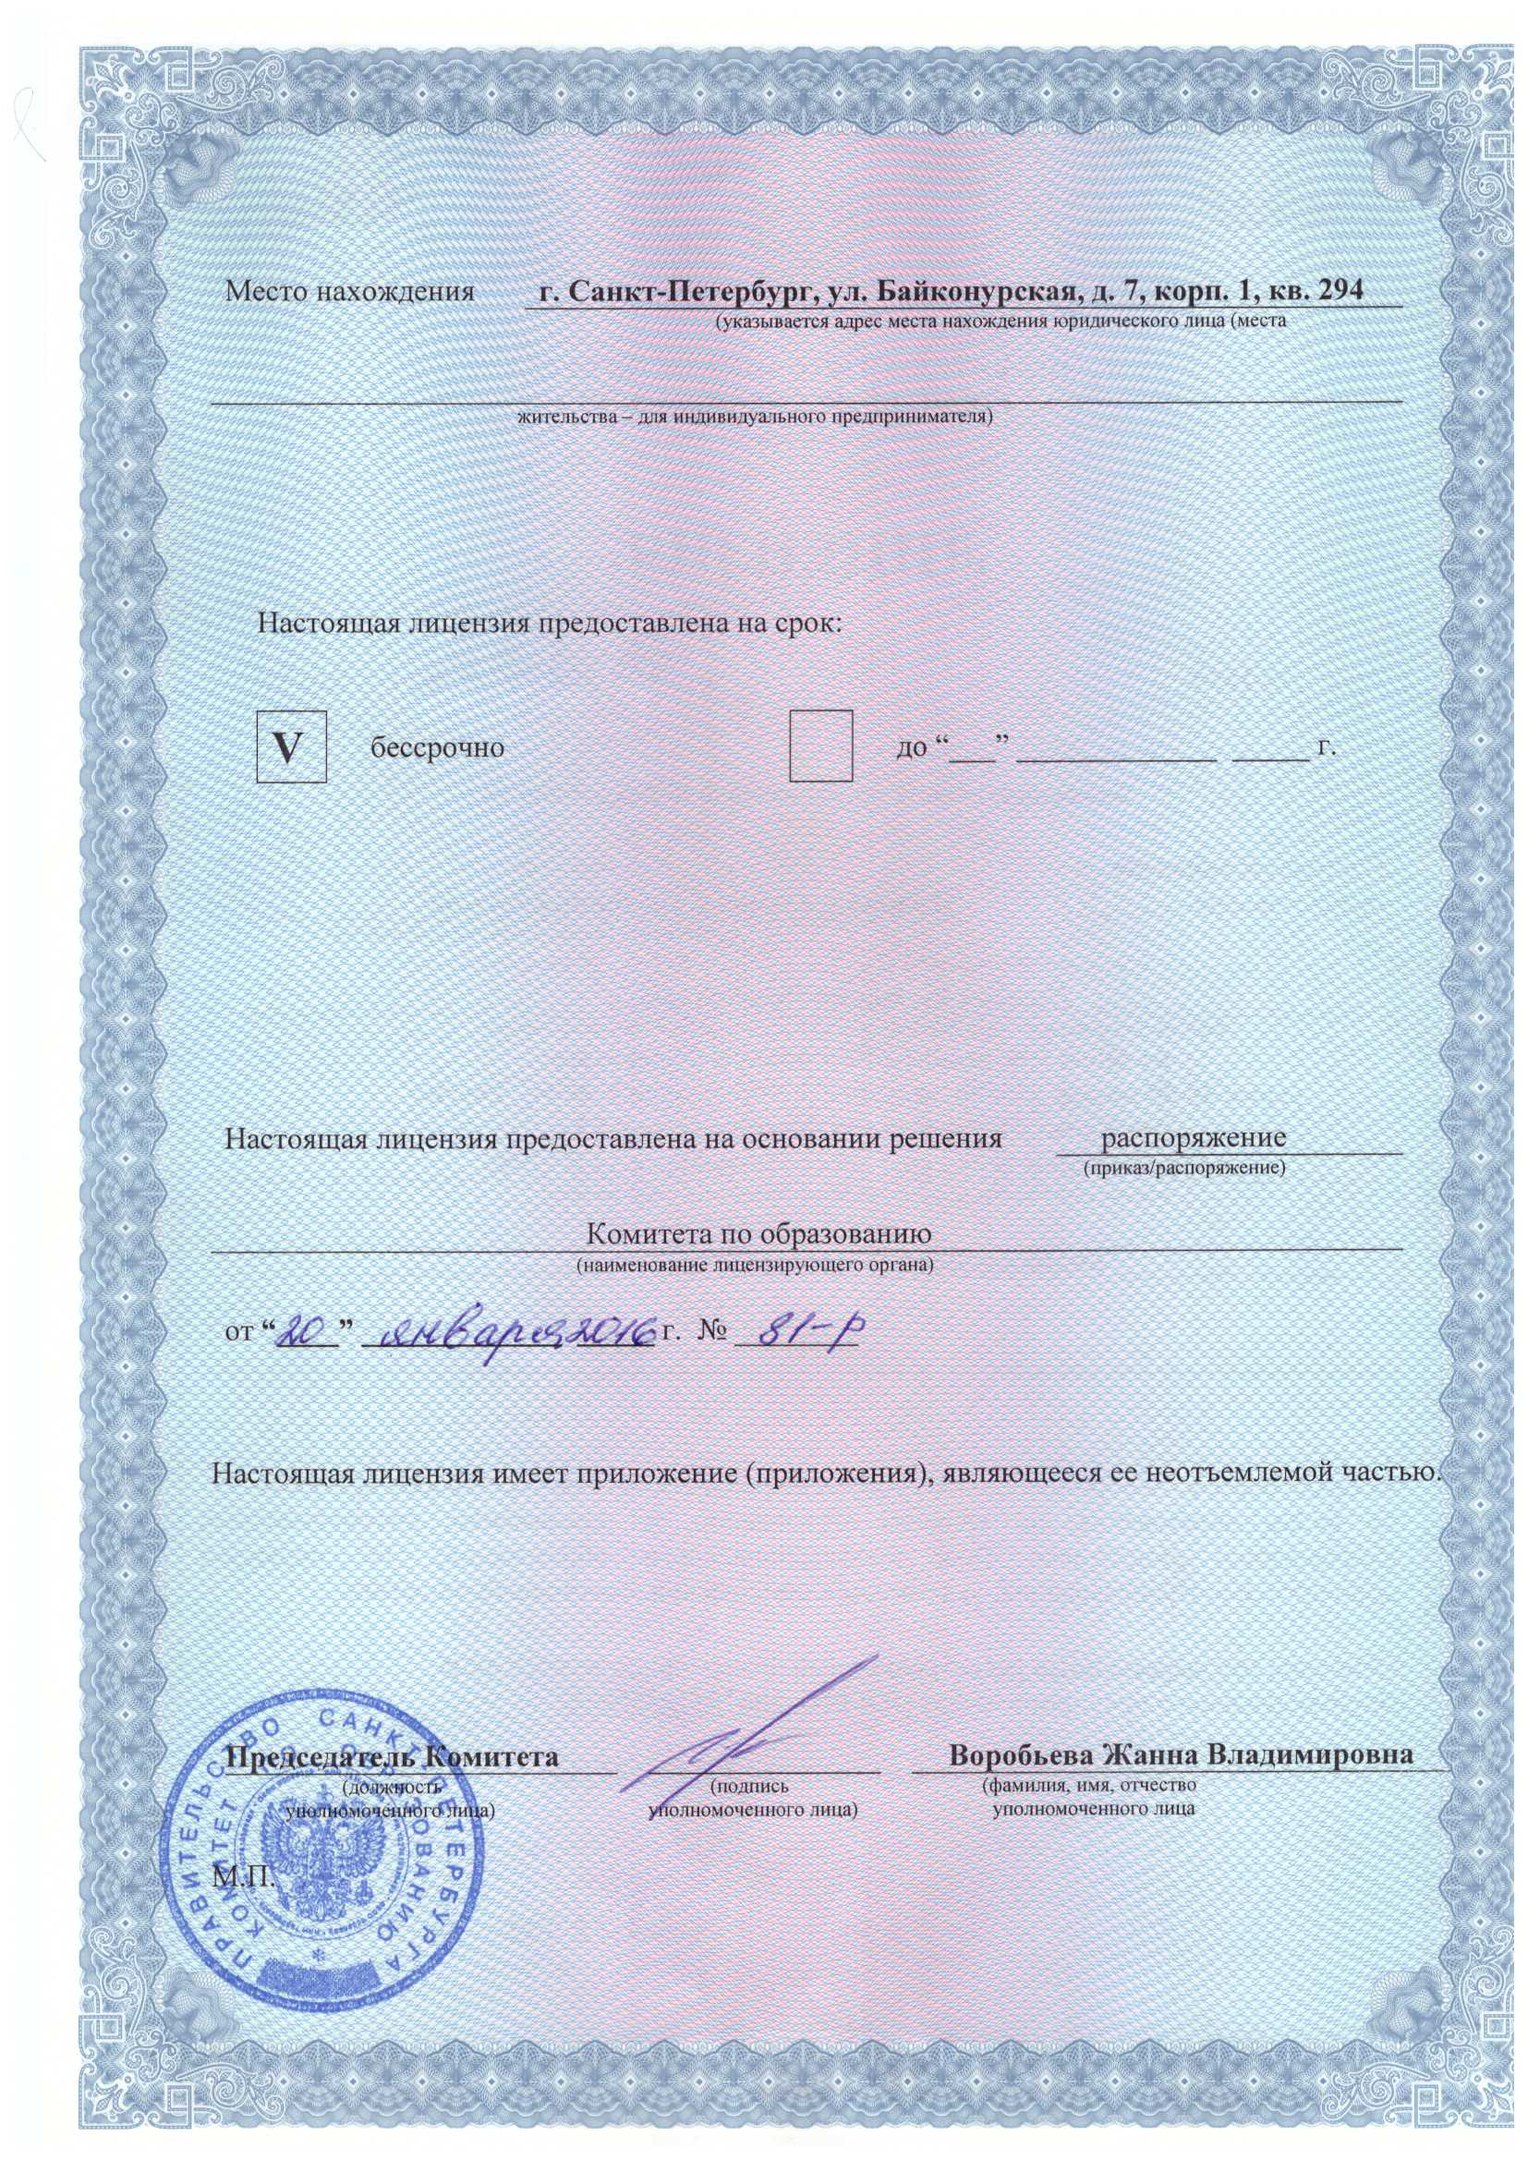 Место нахождения г. Санкт-Петербург, ул. Байконурская, д. 7, корп. 1, кв. 294
(указывается адрес места нахождения юридического лица (места
жительства – для индивидуального предпринимателя)
Настоящая лицензия предоставлена на срок:
V бессрочно до “___” _____________ _____ г.
Настоящая лицензия предоставлена на основании решения распоряжение
(приказ/распоряжение)
Комитета по образованию
(наименование лицензирующего органа)
от “20” января 2016 г. № 81-р
Настоящая лицензия имеет приложение (приложения), являющееся ее неотъемлемой частью.
Председатель Комитета Воробьева Жанна Владимировна
(должность (подпись (фамилия, имя, отчество
уполномоченного лица) уполномоченного лица) уполномоченного лица
М.П.
ПРАВИТЕЛЬСТВО САНКТ-ПЕТЕРБУРГА
КОМИТЕТ ПО ОБРАЗОВАНИЮ